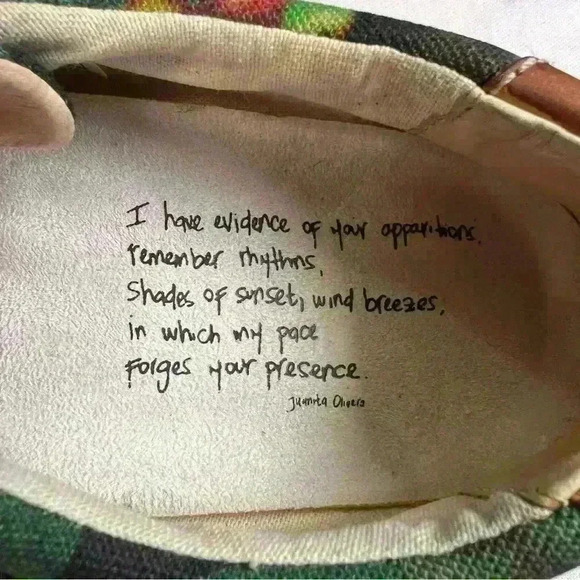 I have evidence of your apparitions,
remember rhythms,
Shades of sunset, wind breezes,
in which my pace
Forges your presence.
Juanita Olivera